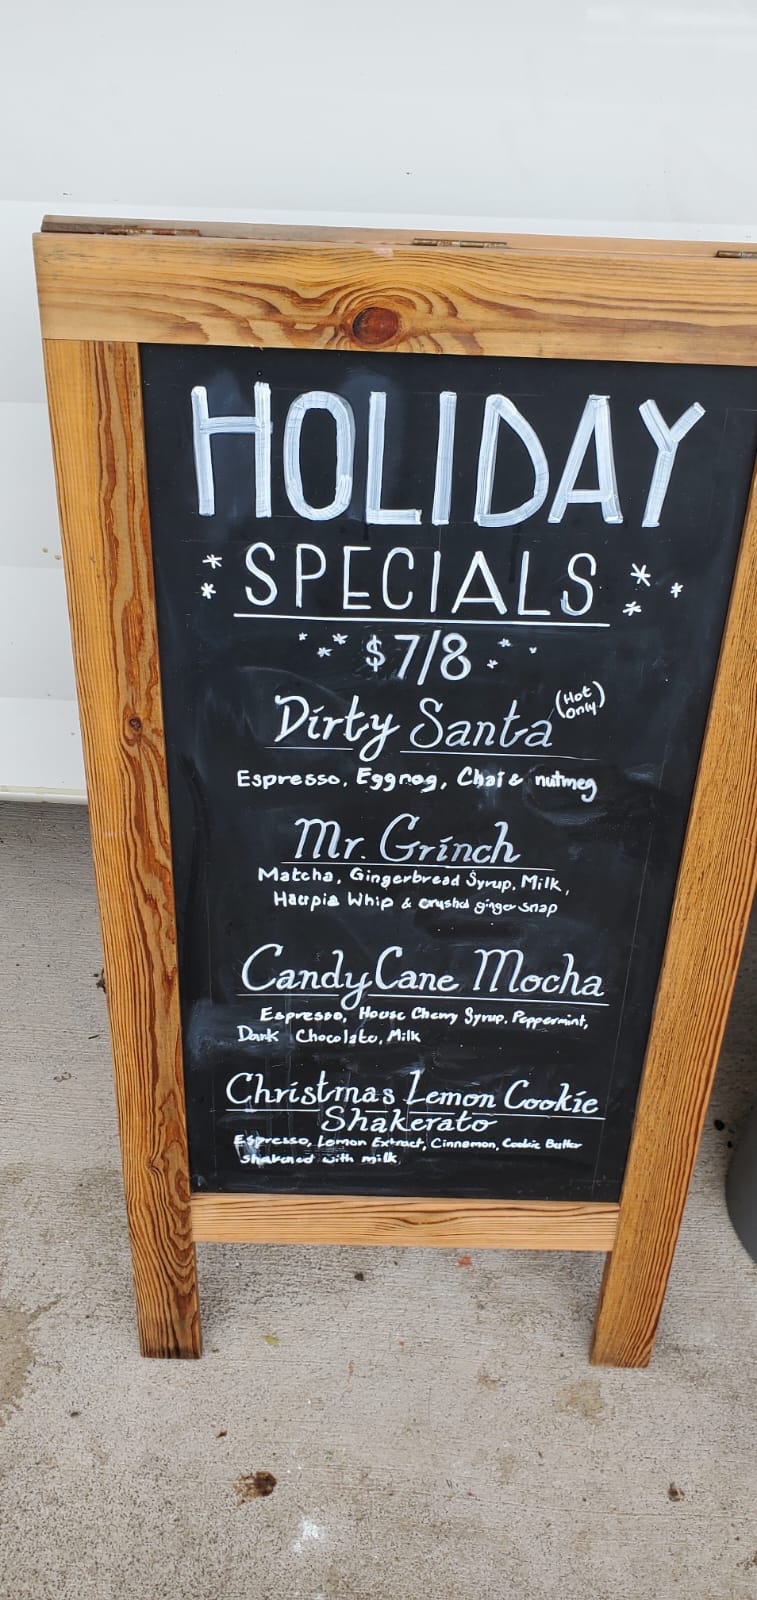 HOLIDAY
SPECIALS
$7/8
Dirty Santa (Hot Only!)
Espresso, Eggnog, Chai & nutmeg
Mr. Grinch
Matcha, Gingerbread Syrup, Milk,
Haupia Whip & crushed ginger snap
Candy Cane Mocha
Espresso, House Cherry Syrup, Peppermint,
Dark Chocolate, Milk
Christmas Lemon Cookie
Shakerato
Espresso, Lemon Extract, Cinnamon, Cookie Butter
shakened with milk